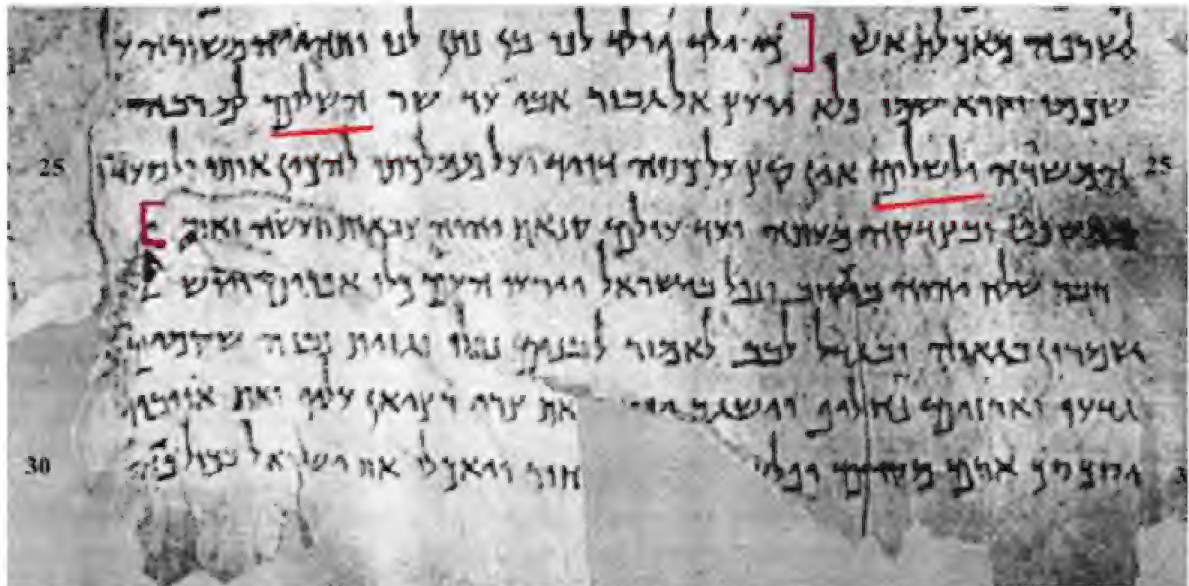 לשרפה מאכלת אש ] כי ילד יולד לנו בן נתן לנו ותהי המשורה על
שכמו וקרא שמו פלא יועץ אל גבור אבי עד שר השלום למרבה
25 המשרה ולשלום אין קץ על כסא דויד ועל ממלכתו להכין אותו 25
במשפט ובצדקה מעתה ועד עולם קנאת יהוה צבאות תעשה זואת [
דבר שלח יהוה ביעקוב ונפל בישראל וידעו העם כולו אפרים
שמרון בגאוה ובגודל לבב לאמור לבנים נפלו וגזית נבנה שקמים
גדעו וארזים נחליף וישגב את צרי רצין עליו ואת אויביו
ארם מקדם ופל חור ויאכלו את ישראל בכול פה 30